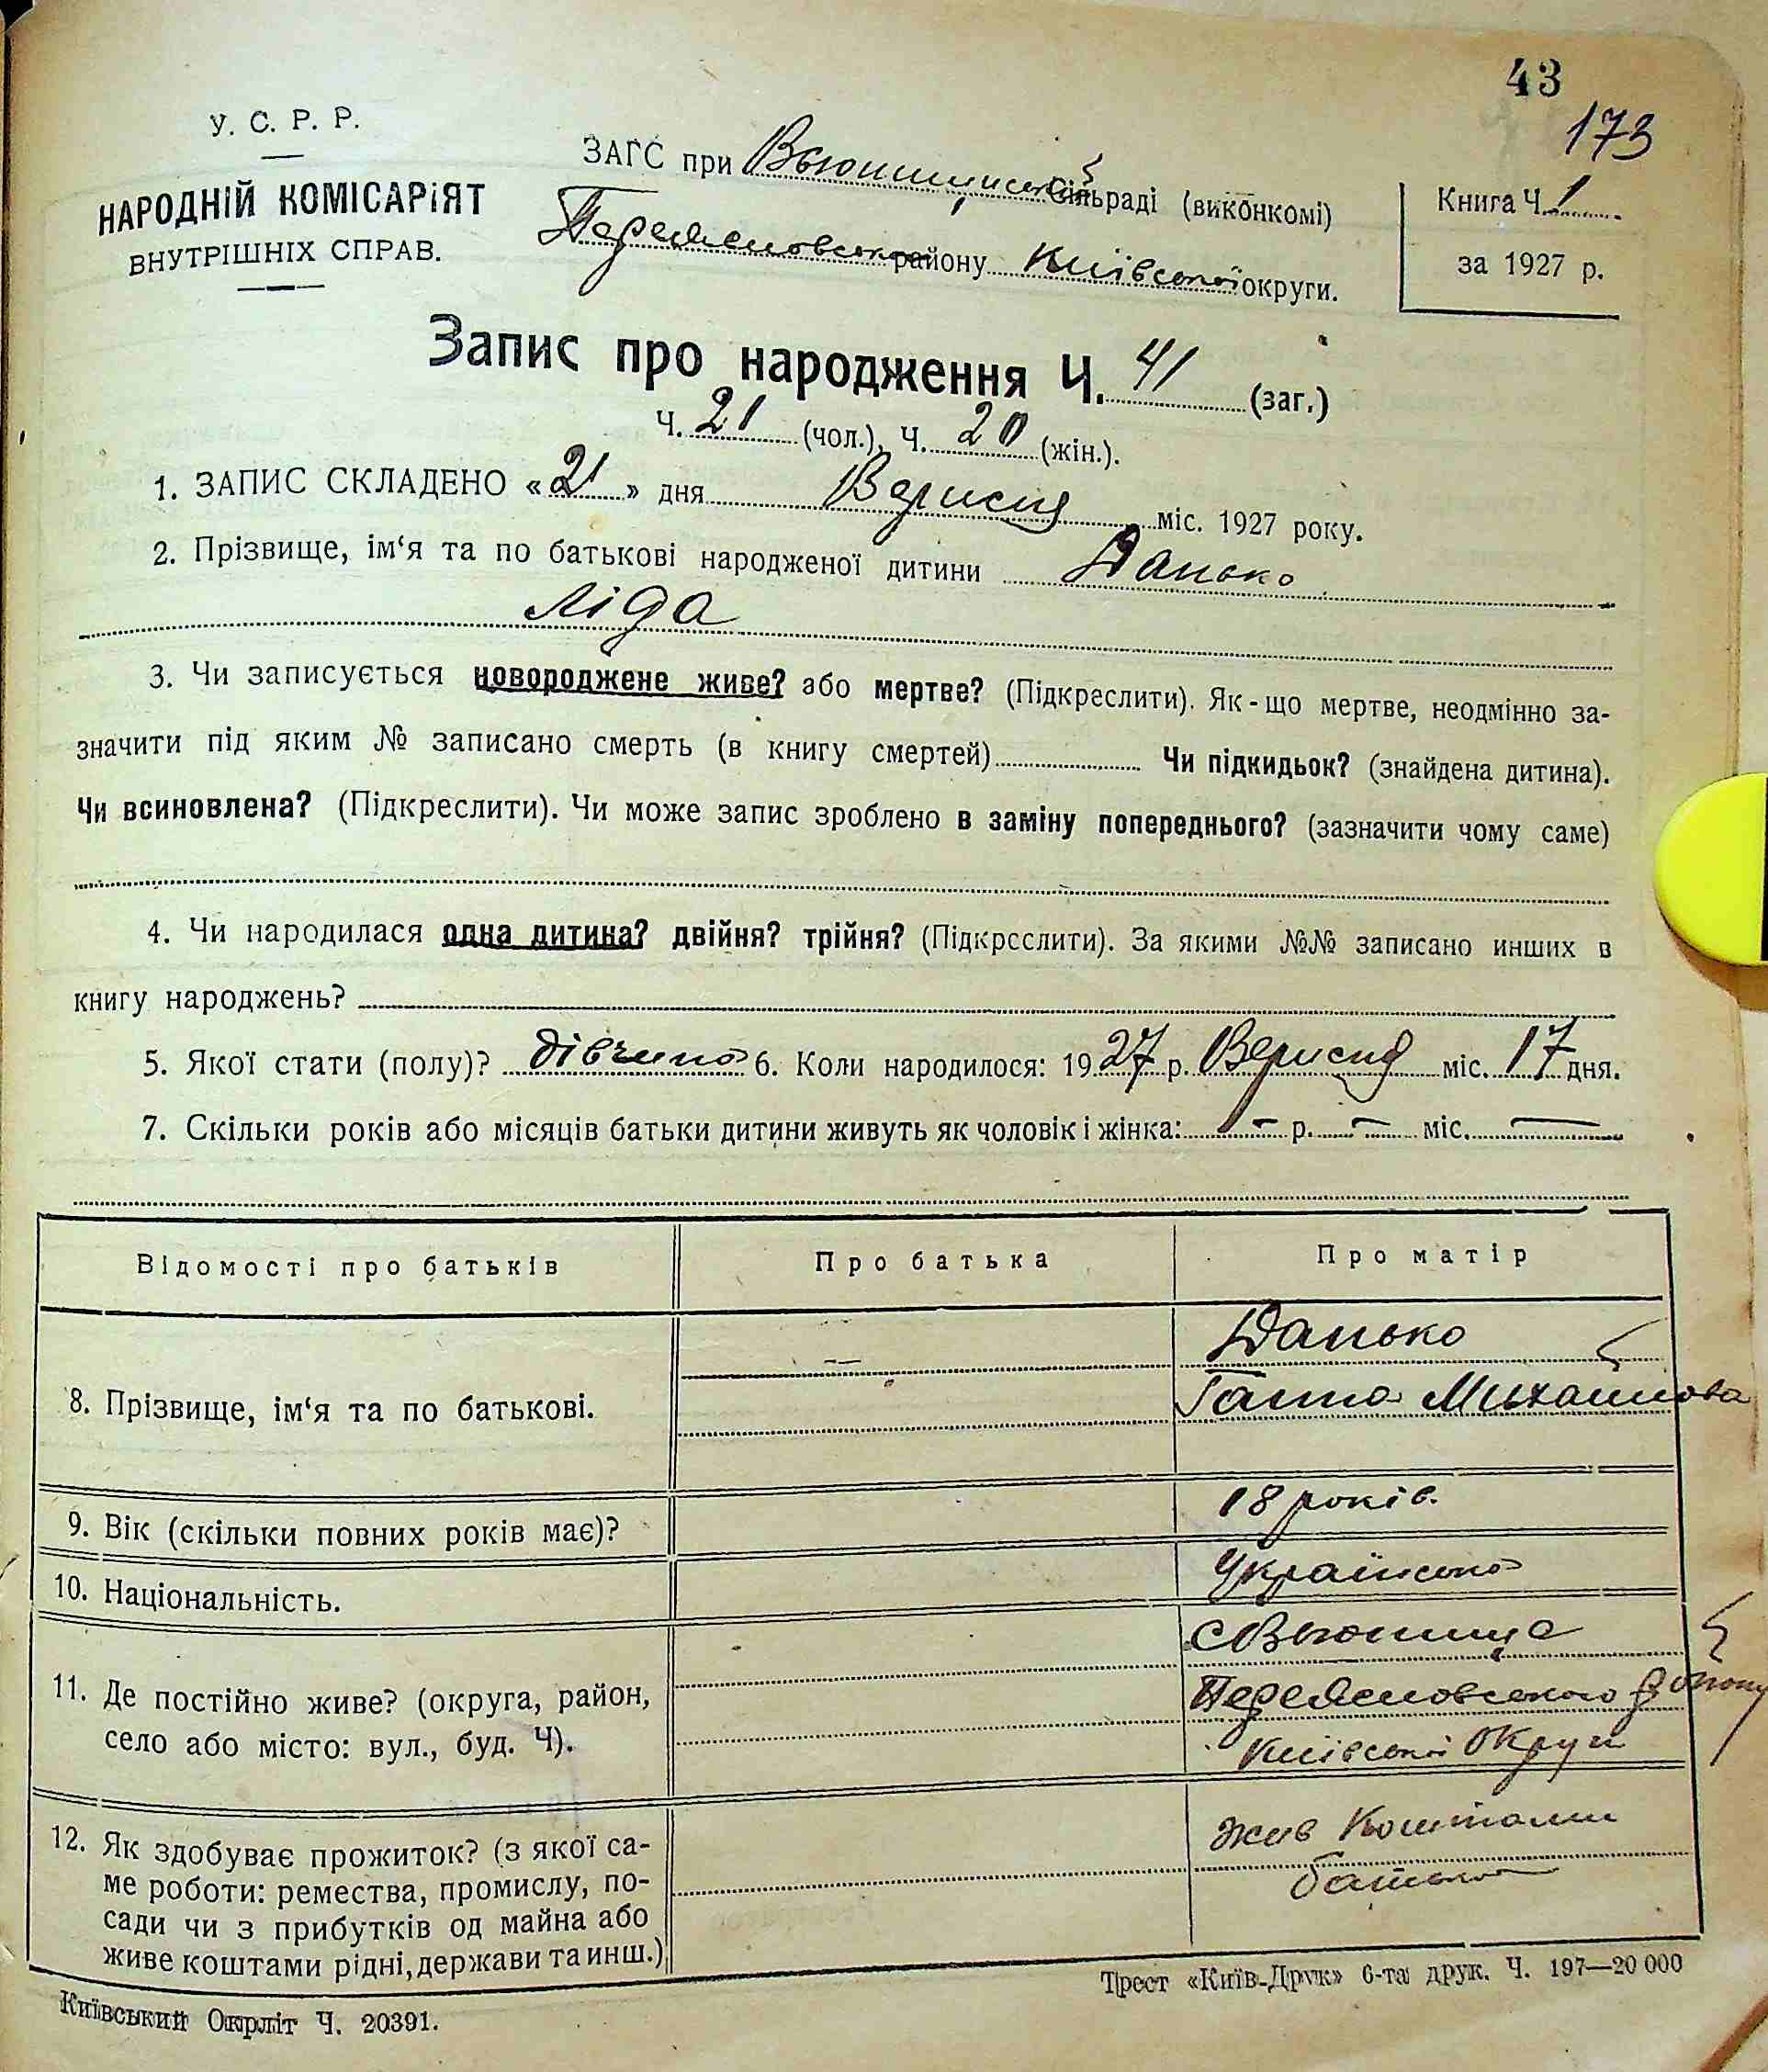 43
173
У. С. Р. Р.
НАРОДНІЙ КОМІСАРІЯТ
ВНУТРІШНІХ СПРАВ.
ЗАГС при Вьюнищській Сільраді (виконкомі)
району Київської округи.
Книга Ч. 1
за 1927 р.
Запис про народження Ч. 41 (заг.)
Ч. 21 (чол.), Ч. 20 (жін.).
1. ЗАПИС СКЛАДЕНО «21» дня Вересня міс. 1927 року.
2. Прізвище, ім‘я та по батькові народженої дитини Данько
Ліда
3. Чи записується новороджене живе? або мертве? (Підкреслити). Як-що мертве, неодмінно за-
значити під яким № записано смерть (в книгу смертей) Чи підкидьок? (знайдена дитина).
Чи всиновлена? (Підкреслити). Чи може запис зроблено в заміну попереднього? (зазначити чому саме)
4. Чи народилася одна дитина? двійня? трійня? (Підкрсслити). За якими №№ записано инших в
книгу народжень?
5. Якої стати (полу)? дівчина 6. Коли народилося: 1927 р. Вересня міс. 17 дня.
7. Скільки років або місяців батьки дитини живуть як чоловік і жінка: – р. – міс. —
Відомості про батьків Про батька Про матір
8. Прізвище, ім‘я та по батькові. — Данько
Ганна Михайлова
9. Вік (скільки повних років має)? 18 років.
10. Національність. Українська
11. Де постійно живе? (округа, район,
село або місто: вул., буд. Ч).
с Вьюнища
району
Київської Округи
12. Як здобуває прожиток? (з якої са-
ме роботи: ремества, промислу, по-
сади чи з прибутків од майна або
живе коштами рідні, держави та инш.)
жив Коштами
батька
Київський Окрліт Ч. 20391.
Трест «Київ-Друк» 6-та друк. Ч. 197—20 000